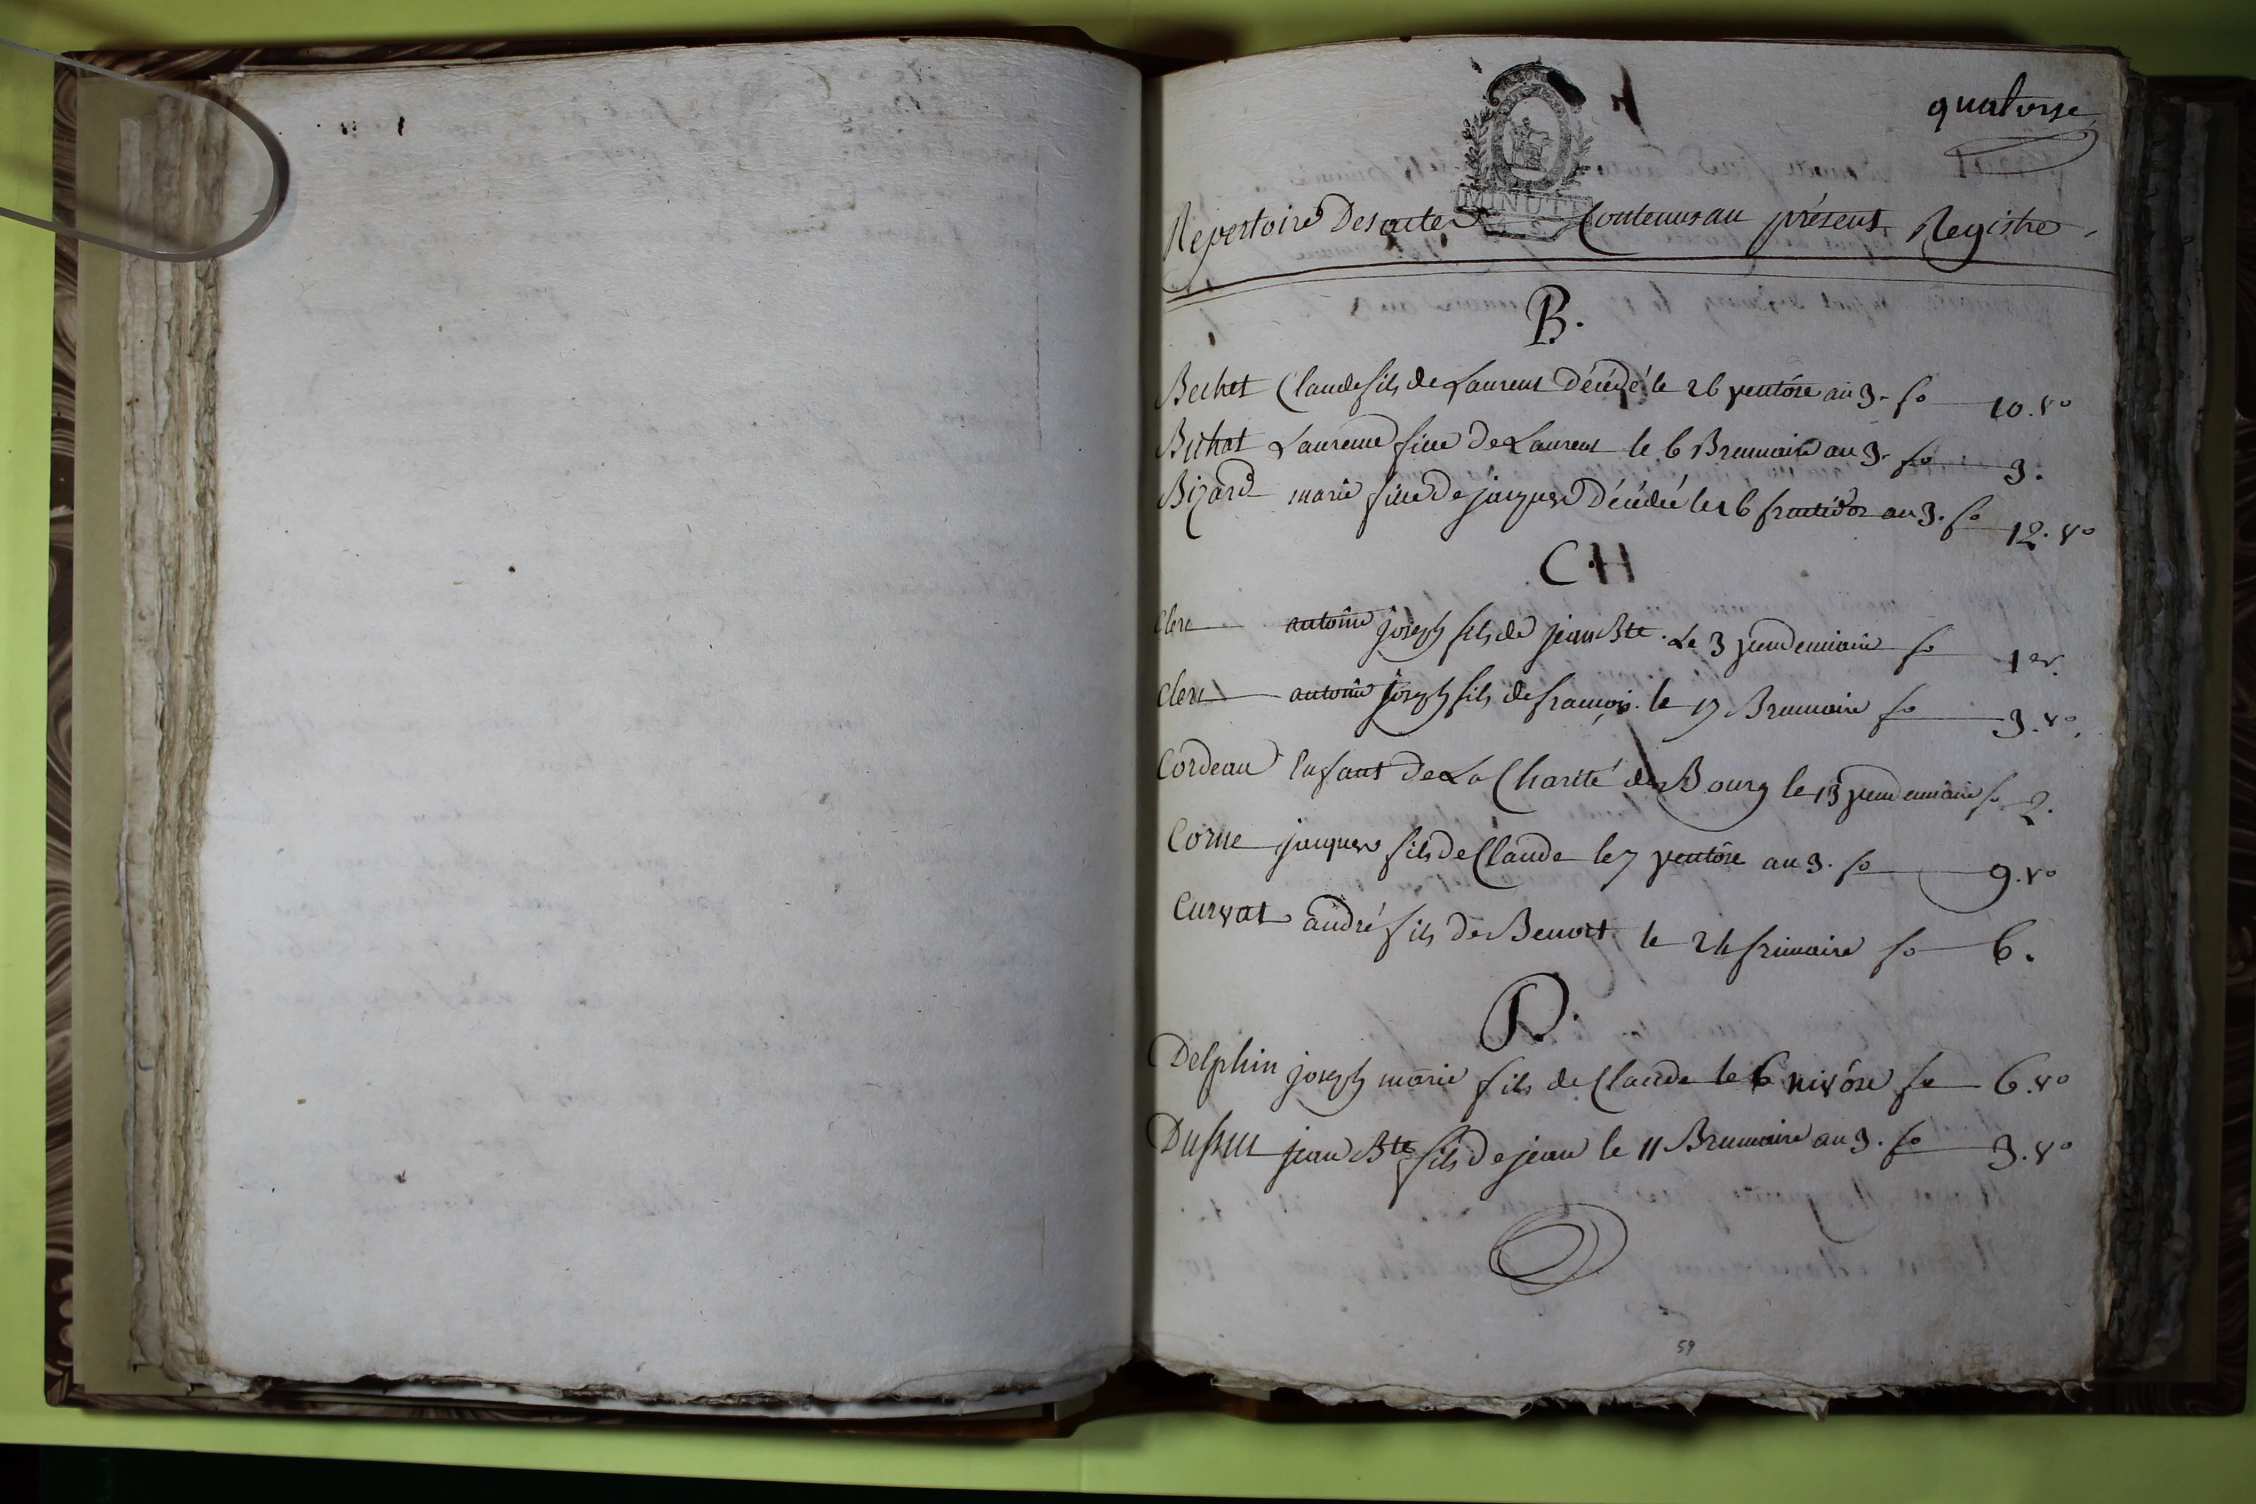 quatorse
MINUTE
Repertoire Des actes Contenus au présent Registre.
B.
Bechet Claude fils de Laurent Décédé le 26 ventôse an 3. fo 10. vo
Bichat Laurence fille De Laurent le 6 Brumaire an 3. fo 3.
Bizard marie fille De jacques Décédée le 26 fructidor an 3. fo 12. vo
CH
Clerc antoine joseph fils de jean Bte. Le 3 vendemiaire fo 1er.
Clerc antoine joseph fils de françois le 17 Brumaire fo 3. vo.
Cordeau Enfant De La Charité de Bourg le 13 vendemiaire fo 2.
Corne jacques fils De Claude le 7 ventôse an 3. fo 9. vo
Curvat andré fils De Benoit le 24 frimaire fo 6.
D.
Delphin joseph marie fils de Claude le 6 nivôse fo 6. vo
jean Bte fils De jean le 11 Brumaire an 3. fo 3. vo
59